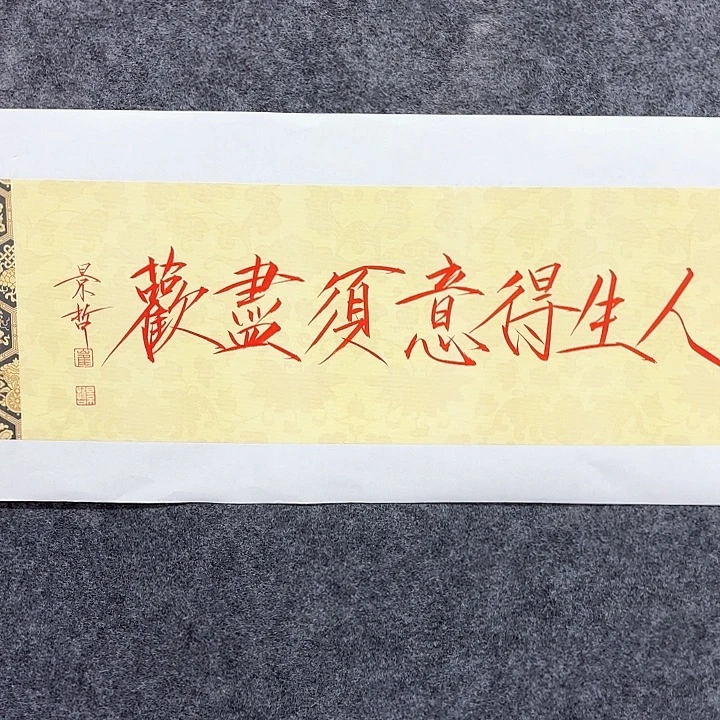 人生得意須盡歡
景哲